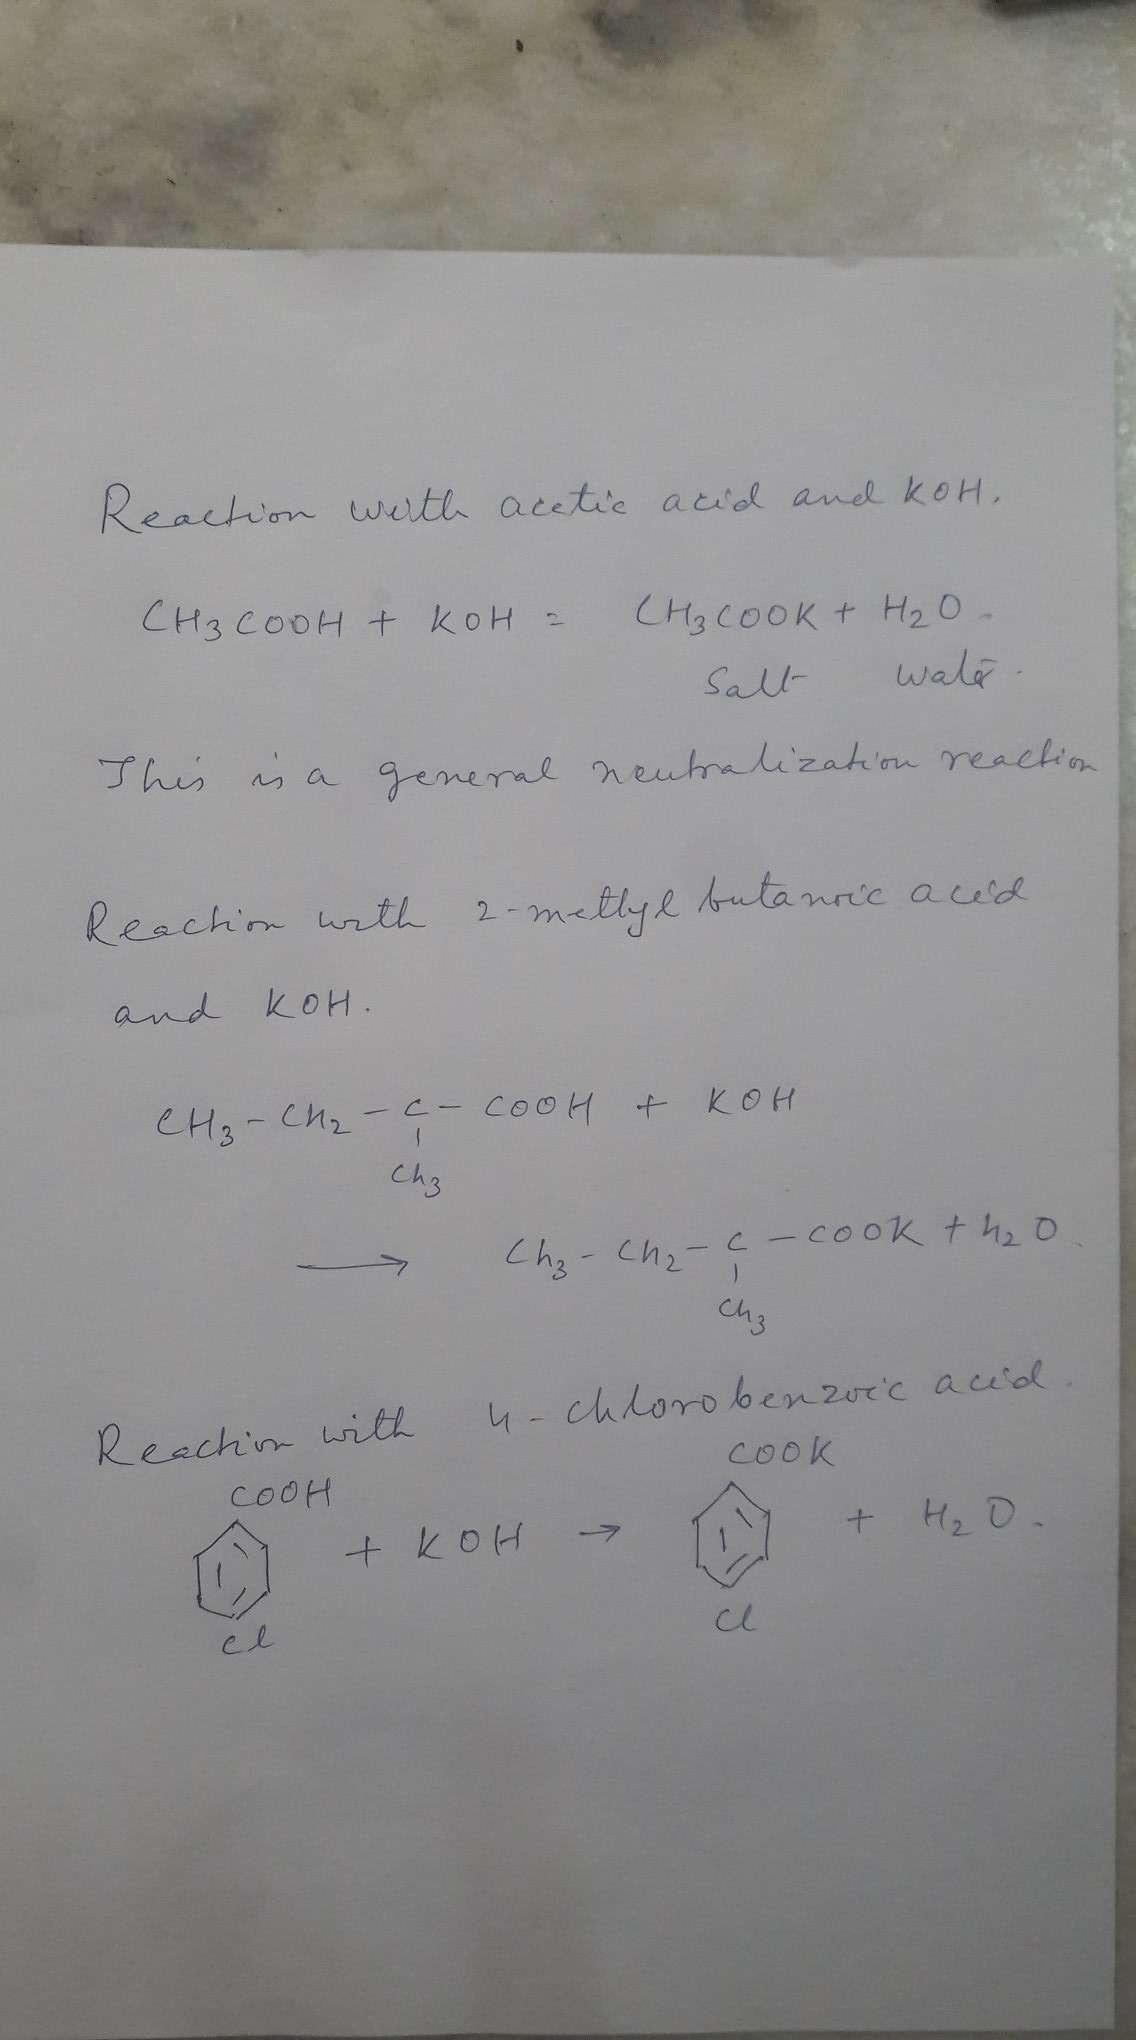 Reaction with acetic acid and KOH.
CH3COOH + KOH = CH3COOK + H2O.
Salt water.
This is a general neutralization reaction
Reaction with 2-methyl butanoic acid
and KOH.
CH3-CH2-C-COOH + KOH
CH3
→ CH3-CH2-C-COOK + H2O.
CH3
Reaction with 4-chlorobenzoic acid.
COOH COOK
+ KOH → + H2O.
Cl Cl